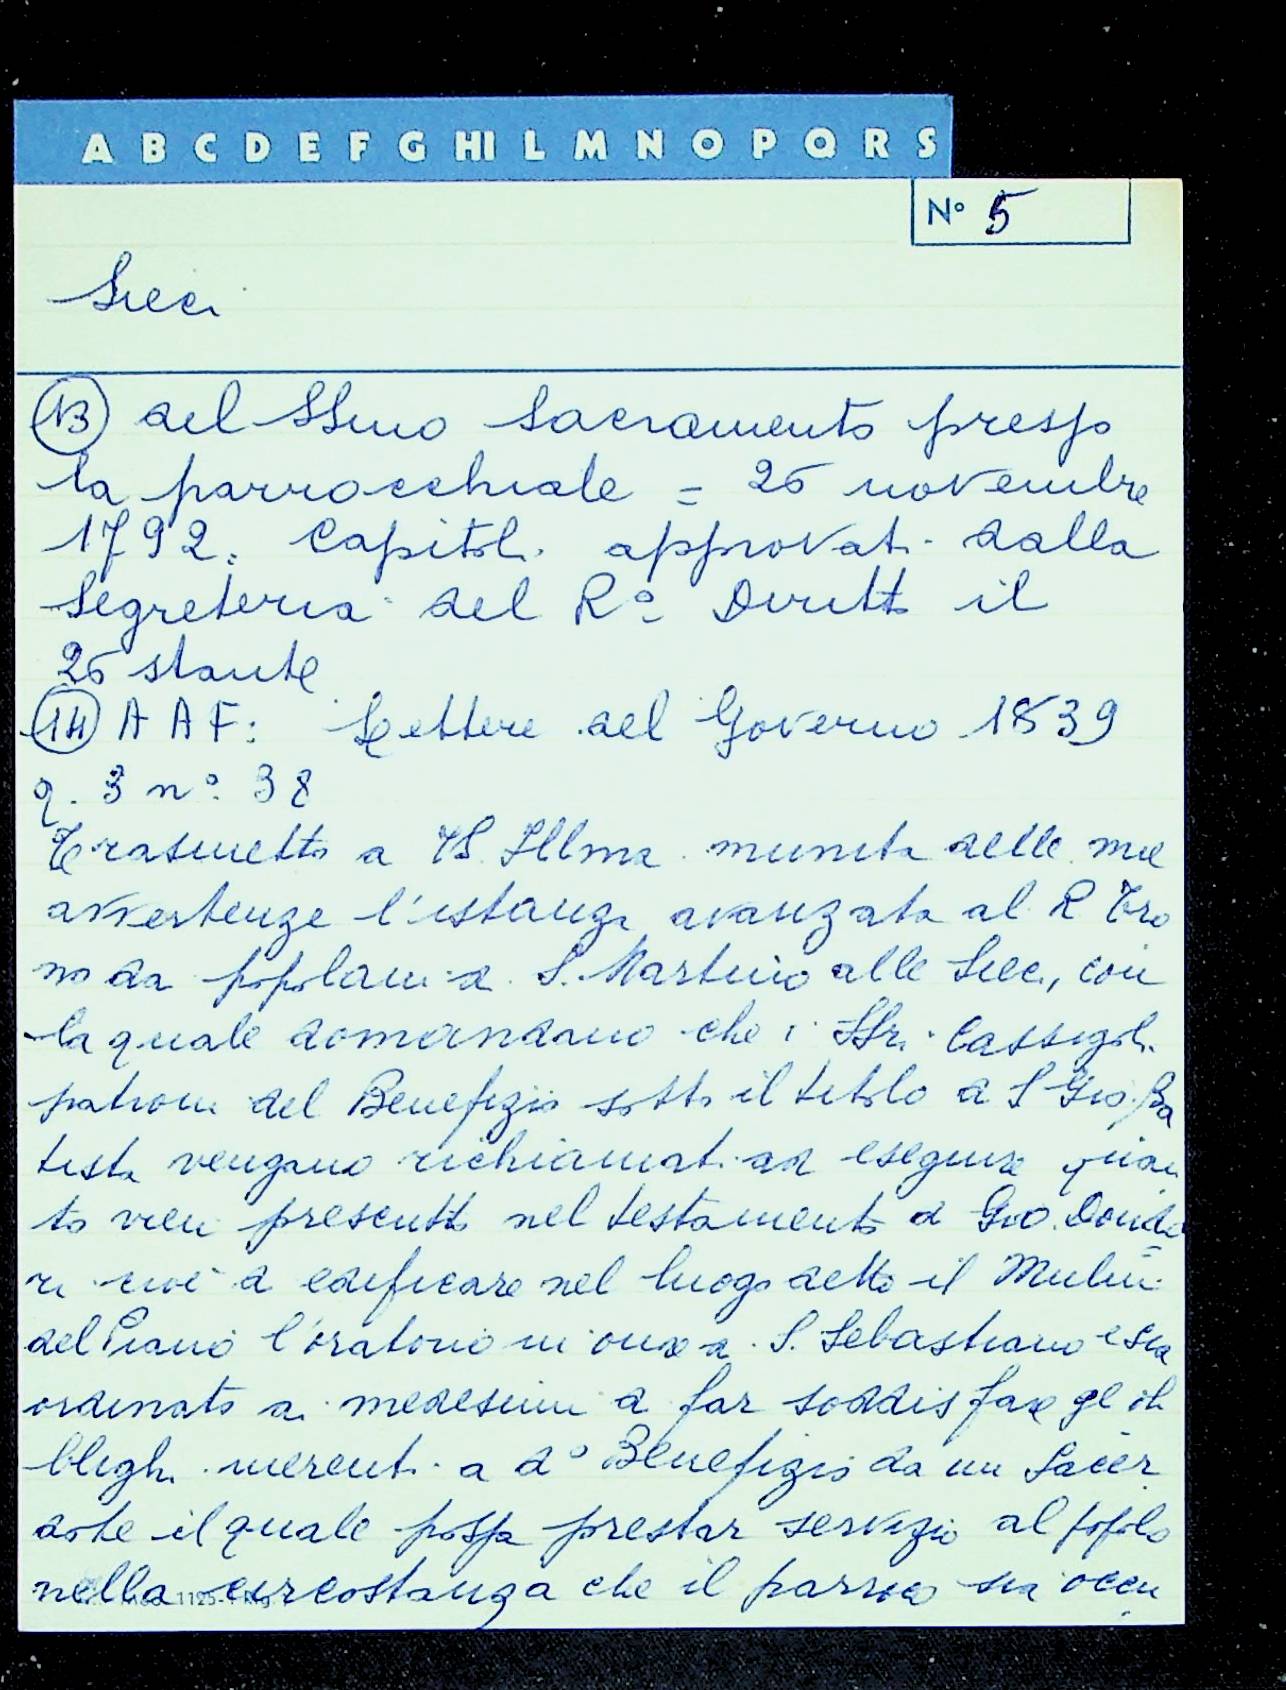 A B C D E F G HI L M N O P Q R S
Nº 5
Sieci
13 del SSmo Sacramento presso
la parrocchiale = 26 novembre
1792. Capitoli approvati dalla
Segreteria del Rº Diritto il
26 stante
14 AAF: Lettere del Governo 1839
q. 3 nº. 38
Trasmetto a VS. Illma munita delle mie
avvertenze l'istanza avanzata al R Tro
no da popolani di S. Martino alle Sieci, con
la quale domandano che i SSri Cassigoli
patroni del Benefizio sotto il titolo di S Gio. Ba
tista vengano richiamati ad eseguire quan
to vien prescritto nel testamento di Gio. 
ri cioè di edificare nel luogo detto il Mulin
del Piano l'oratorio in onore di S. Sebastiano e sia
ordinato ai medesimi di far soddisfare gl'ob
blighi inerenti a dº Benefizio da un Sacer
dote il quale possa prestar servizio al popolo
nella circostanza che il parroco sia occu